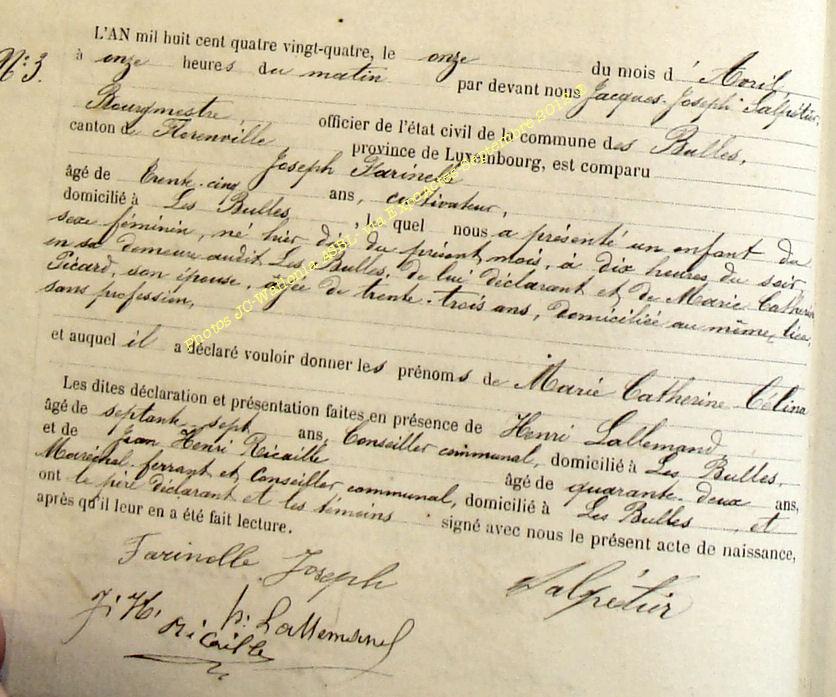 N°: 3.
L'AN mil huit cent quatre vingt-quatre, le onze du mois d'Avril,
à onze heures du matin par devant nous Jacques-Joseph Salpétier,
Bourgmestre, officier de l'état civil de la commune des Bulles,
canton de Florenville province de Luxembourg, est comparu
Joseph Farinelle
âgé de trente-cinq ans, cultivateur,
domicilié à Les Bulles, le quel nous a présenté un enfant du
sexe féminin, né hier dix du présent mois, à dix heures du soir
en sa demeure audit Les Bulles, de lui déclarant et de Marie Catherine
Picard, son épouse, âgée de trente-trois ans, domiciliée au même lieu,
sans profession,
et auquel il a déclaré vouloir donner les prénoms de Marie Catherine Célina
Les dites déclaration et présentation faites en présence de Henri Lallemand,
âgé de septante-sept ans, Conseiller communal, domicilié à Les Bulles,
et de Jean Henri Ricaille âgé de quarante-deux ans,
Maréchal-ferrant et Conseiller communal, domicilié à Les Bulles, et
ont le père déclarant et les témoins signé avec nous le présent acte de naissance,
après qu'il leur en a été fait lecture.
Farinelle Joseph
Salpétier
J: H: Ricaille
h: Lallemand